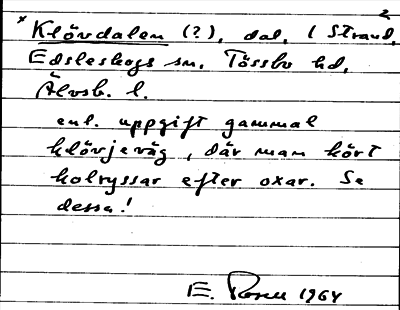 2
* Klövdalen (?), dal, i Strand,
Edsleskogs sn, Tössbo hd,
Älvsb. l.
enl. uppgift gammal
klövjeväg, där man kört
kolryssar efter oxar. Se
dessa!
E. Rosell 1964